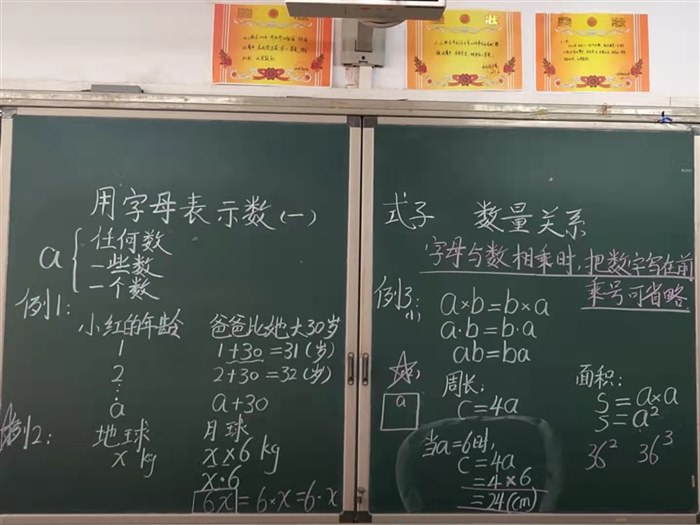 用字母表示数(一)
a { 任何数
一些数
一个数
例1:
小红的年龄 爸爸比她大30岁
1 1+30=31(岁)
2 2+30=32(岁)
⋮
a a+30
例2: 地球 月球
x kg x×6 kg
x·6
6x=6·x=6·x
式子 数量关系
字母与数相乘时,把数字写在前
乘号可省略
例3:
a×b=b×a
a·b=b·a
ab=ba
a
周长:
C=4a
当a=6时,
C=4a
=4×6
=24(cm)
面积:
S=a×a
S=a²
36² 36³